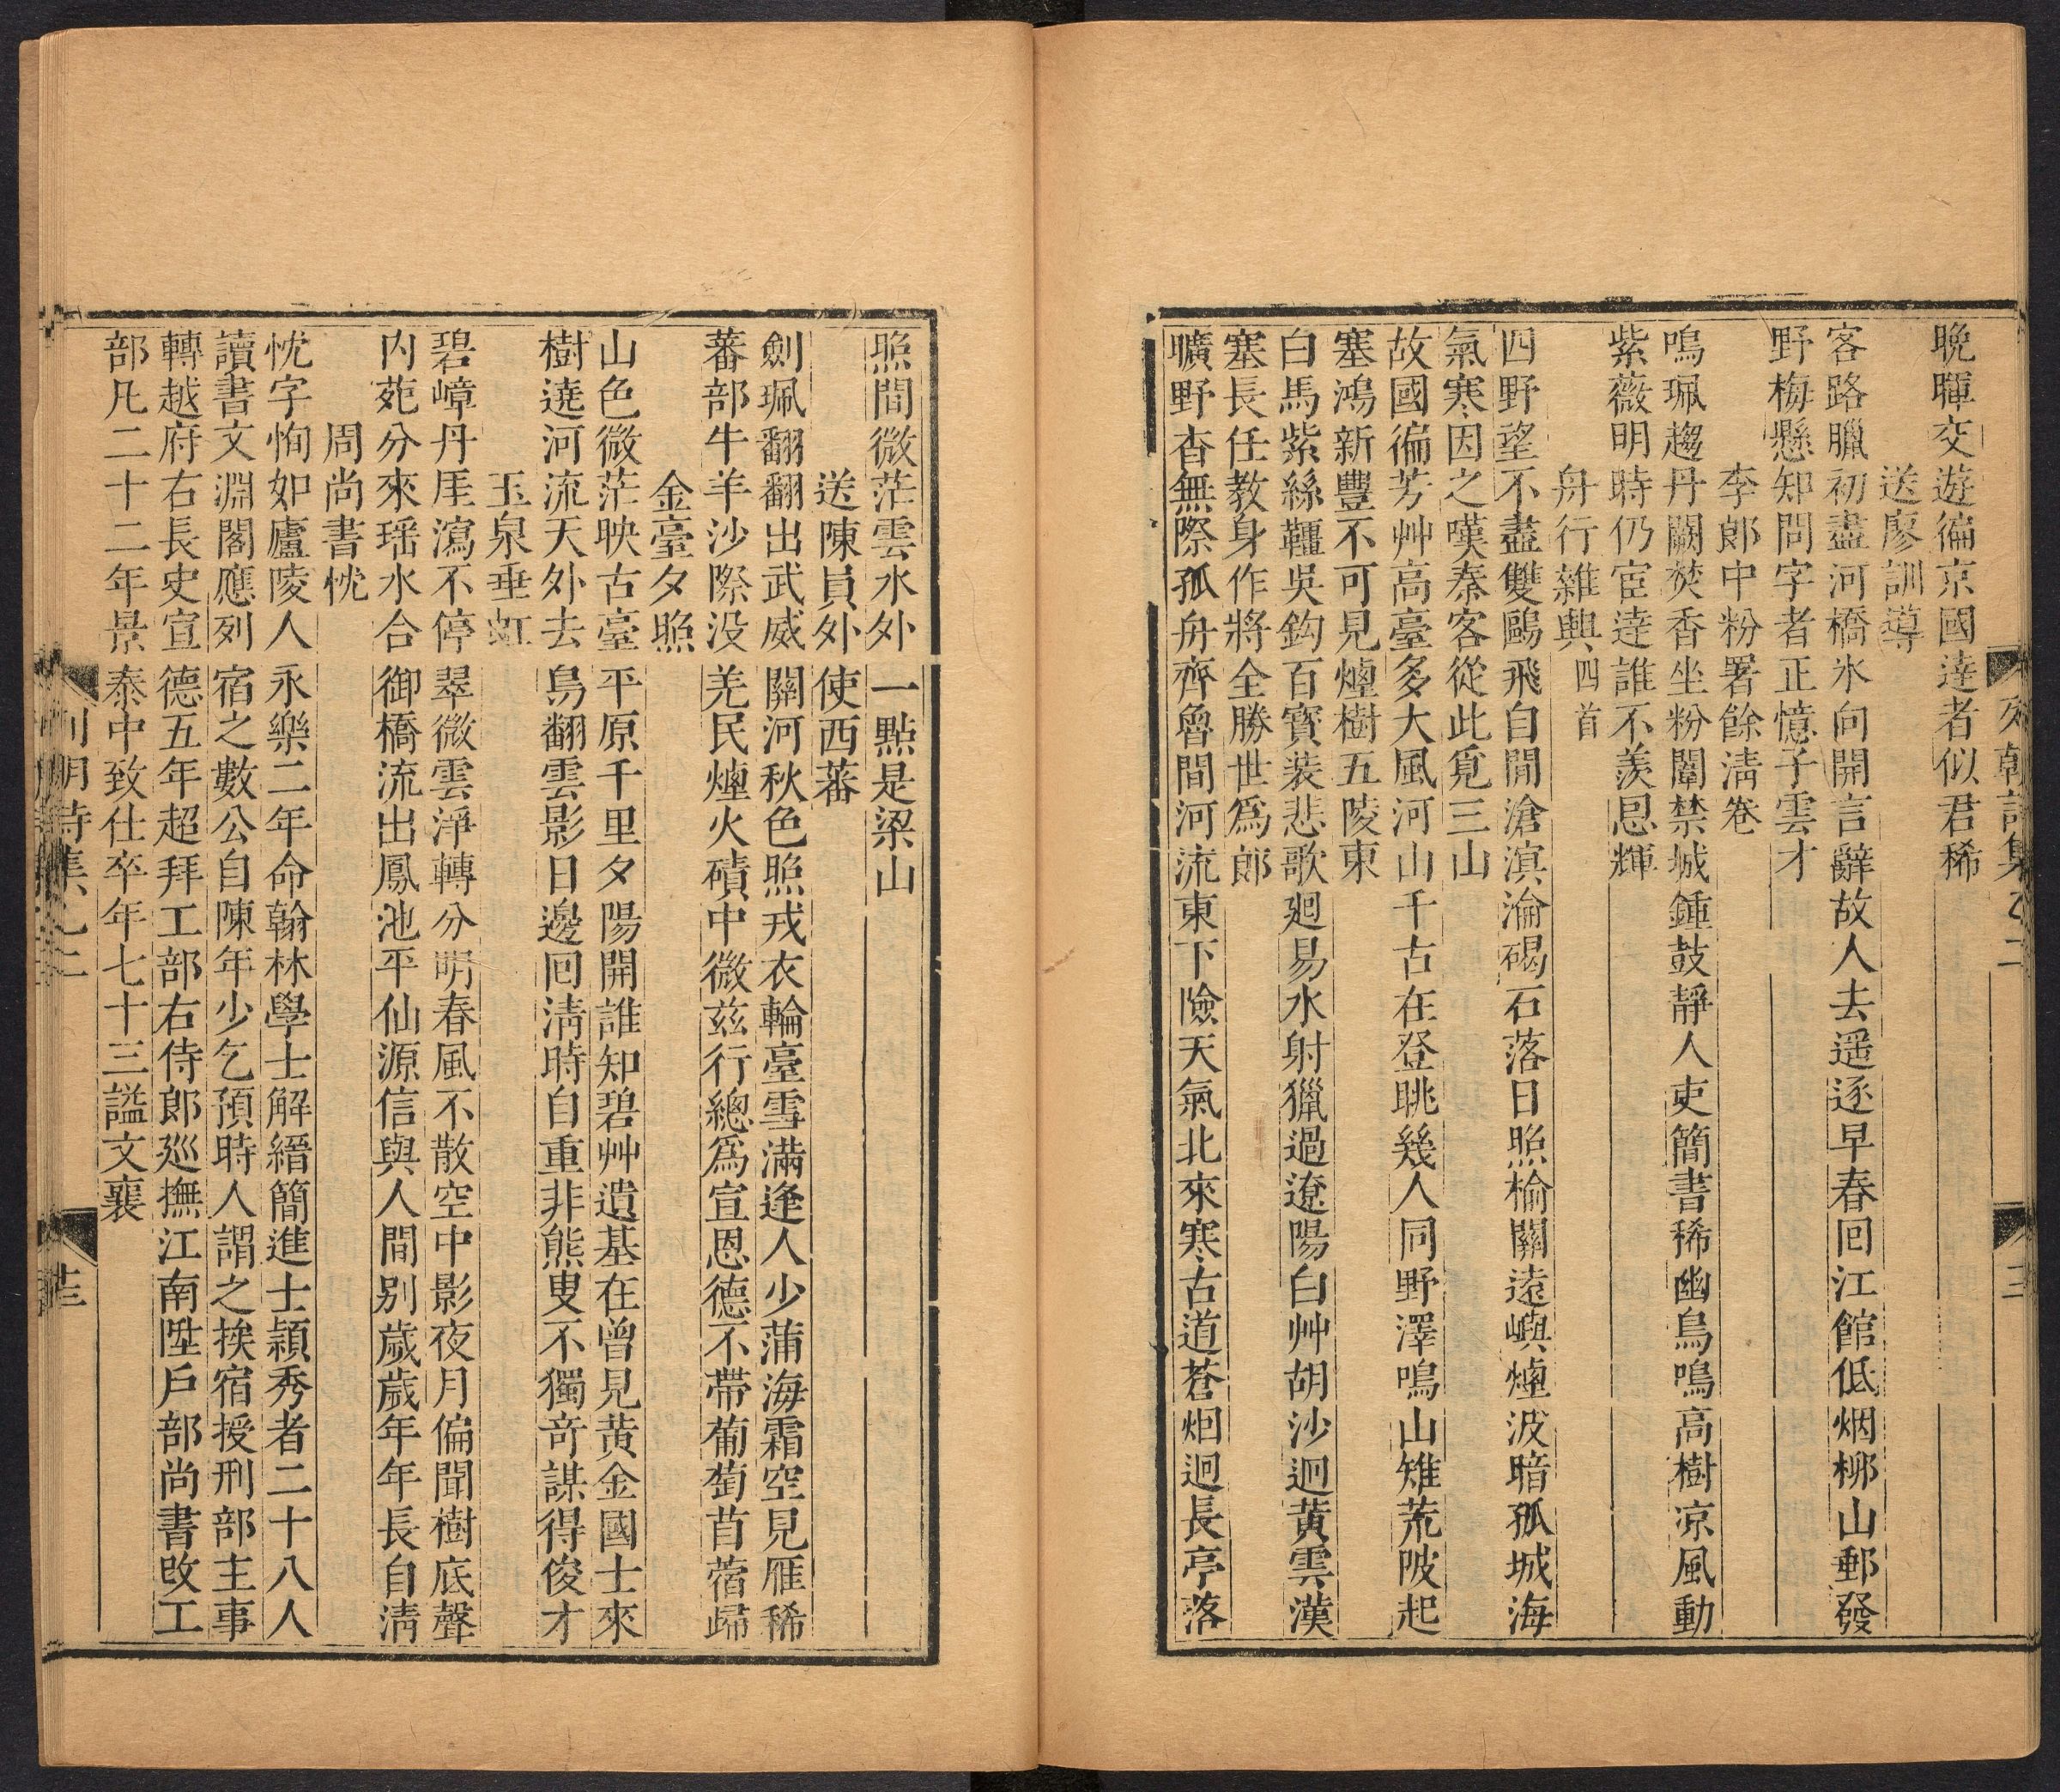 晚暉交遊徧京國達者似君稀
送廖訓導
客路臘初盡河橋氷向開言辭故人去遥逐早春回江館低烟柳山郵發
野梅懸知問字者正憶子雲才
李郞中粉署餘淸卷
鳴珮趨丹闕焚香坐粉闈禁城鍾鼓靜人吏簡書稀幽鳥鳴高樹凉風動
紫薇明時仍宦達誰不羨恩輝
舟行雜興四首
四野望不盡雙鷗飛自閒滄溟淪碣石落日照榆關遠嶼煙波暗孤城海
氣寒因之嘆秦客從此覓三山
故國徧芳艸高臺多大風河山千古在登眺幾人同野澤鳴山雉荒陂起
塞鴻新豐不可見煙樹五陵東
白馬紫絲韁吳鈎百寶裝悲歌廻易水射獵過遼陽白艸胡沙迥黄雲漢
塞長任教身作將全勝世爲郞
曠野杳無際孤舟齊魯間河流東下險天氣北來寒古道蒼烟迥長亭落
照間微茫雲水外一點是梁山
送陳員外使西蕃
劍珮翻翻出武威關河秋色照戎衣輪臺雪滿逢人少蒲海霜空見雁稀
蕃部牛羊沙際没羌民煙火磧中微兹行總爲宣恩德不帶葡萄苜蓿歸
金臺夕照
山色微茫映古臺平原千里夕陽開誰知碧艸遺基在曾見黄金國士來
樹遶河流天外去鳥翻雲影日邊回淸時自重非熊叟不獨奇謀得俊才
玉泉垂虹
碧嶂丹厓瀉不停翠微雲淨轉分明春風不散空中影夜月偏聞樹底聲
内苑分來瑶水合御橋流出鳳池平仙源信與人間别歲歲年年長自淸
周尚書忱
忱字恂如廬陵人永樂二年命翰林學士解縉簡進士穎秀者二十八人
讀書文淵閣應列宿之數公自陳年少乞預時人謂之挨宿授刑部主事
轉越府右長史宣德五年超拜工部右侍郞廵撫江南陞戶部尚書改工
部凡二十二年景泰中致仕卒年七十三謚文襄